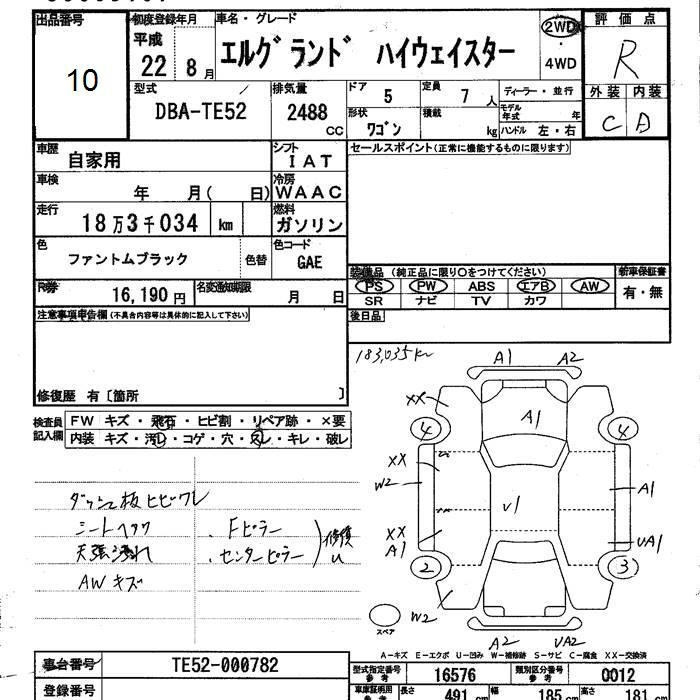 出品番号 10
初度登録年月 平成 22 8月
車名・グレード エルグランド ハイウェイスター
2WD・4WD
評価点 R
外装 内装
C D
型式 DBA-TE52
排気量 2488 CC
ドア 5
定員 7人
形状 ワゴン
積載 kg
ディーラー・並行
モデル年式 年
ハンドル 左・右
車歴 自家用
シフト IAT
車検 年 月( 日)
冷房 WAAC
走行 18万3千034 km
燃料 ガソリン
色 ファントムブラック 色替
色コード GAE
R券 16,190円
名変通知期限 月 日
セールスポイント(正常に機能するものに限ります)
装備品 (純正品に限り○をつけてください)
新車保証書 有・無
PS PW ABS エアB AW
SR ナビ TV カワ
後日品
注意事項申告欄 (不具合内容等は具体的に記入して下さい)
修復歴 有〔箇所 〕
検査員記入欄
FW キズ・飛石・ヒビ割・リペア跡・×要
内装 キズ・汚レ・コゲ・穴・スレ・キレ・破レ
183,035km
A1 A2
XX
4 A1 4
XX
W2
V1
A1
XX
A1
UA1
2 3
W2
スペア
A2 UA2
ダッシュ板ヒビワレ
シートヘタリ
天張汚れ
AWキズ
・Fピラー
・センターピラー
A-キズ E-エクボ U-凹み W-補修跡 S-サビ C-腐食 XX-交換済
車台番号 TE52-000782
登録番号
型式指定番号 参考 16576
類別区分番号 参考 0012
車庫証明用 参考
長さ 491 cm 幅 185 cm 高さ 181 cm